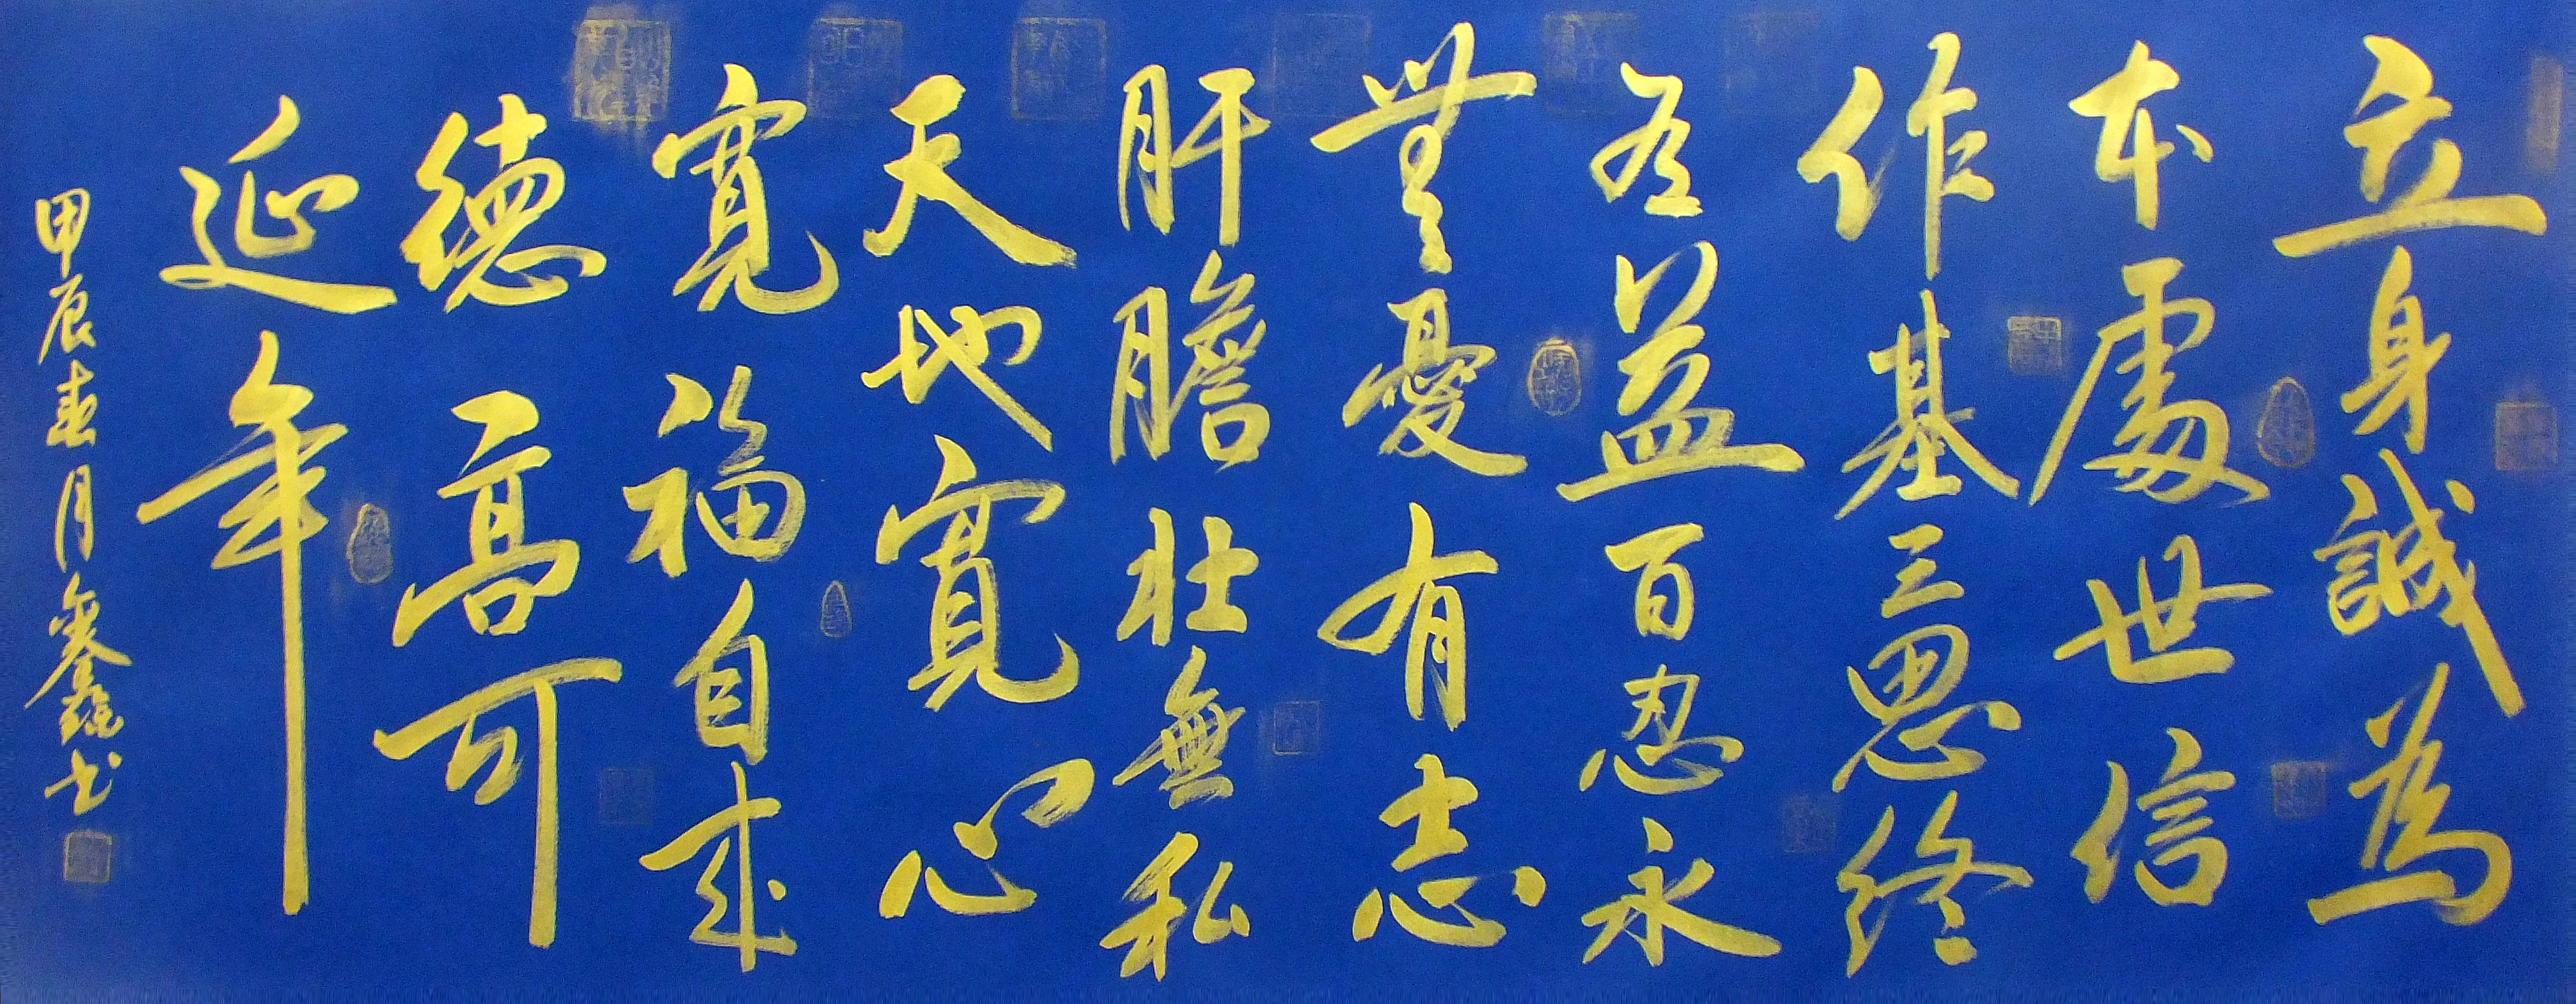 立身誠為
本處世信
作基三思終
有益百忍永
無憂有志
肝膽壯無私
天地寬心
寬福自來
德高可
延年
甲辰春月